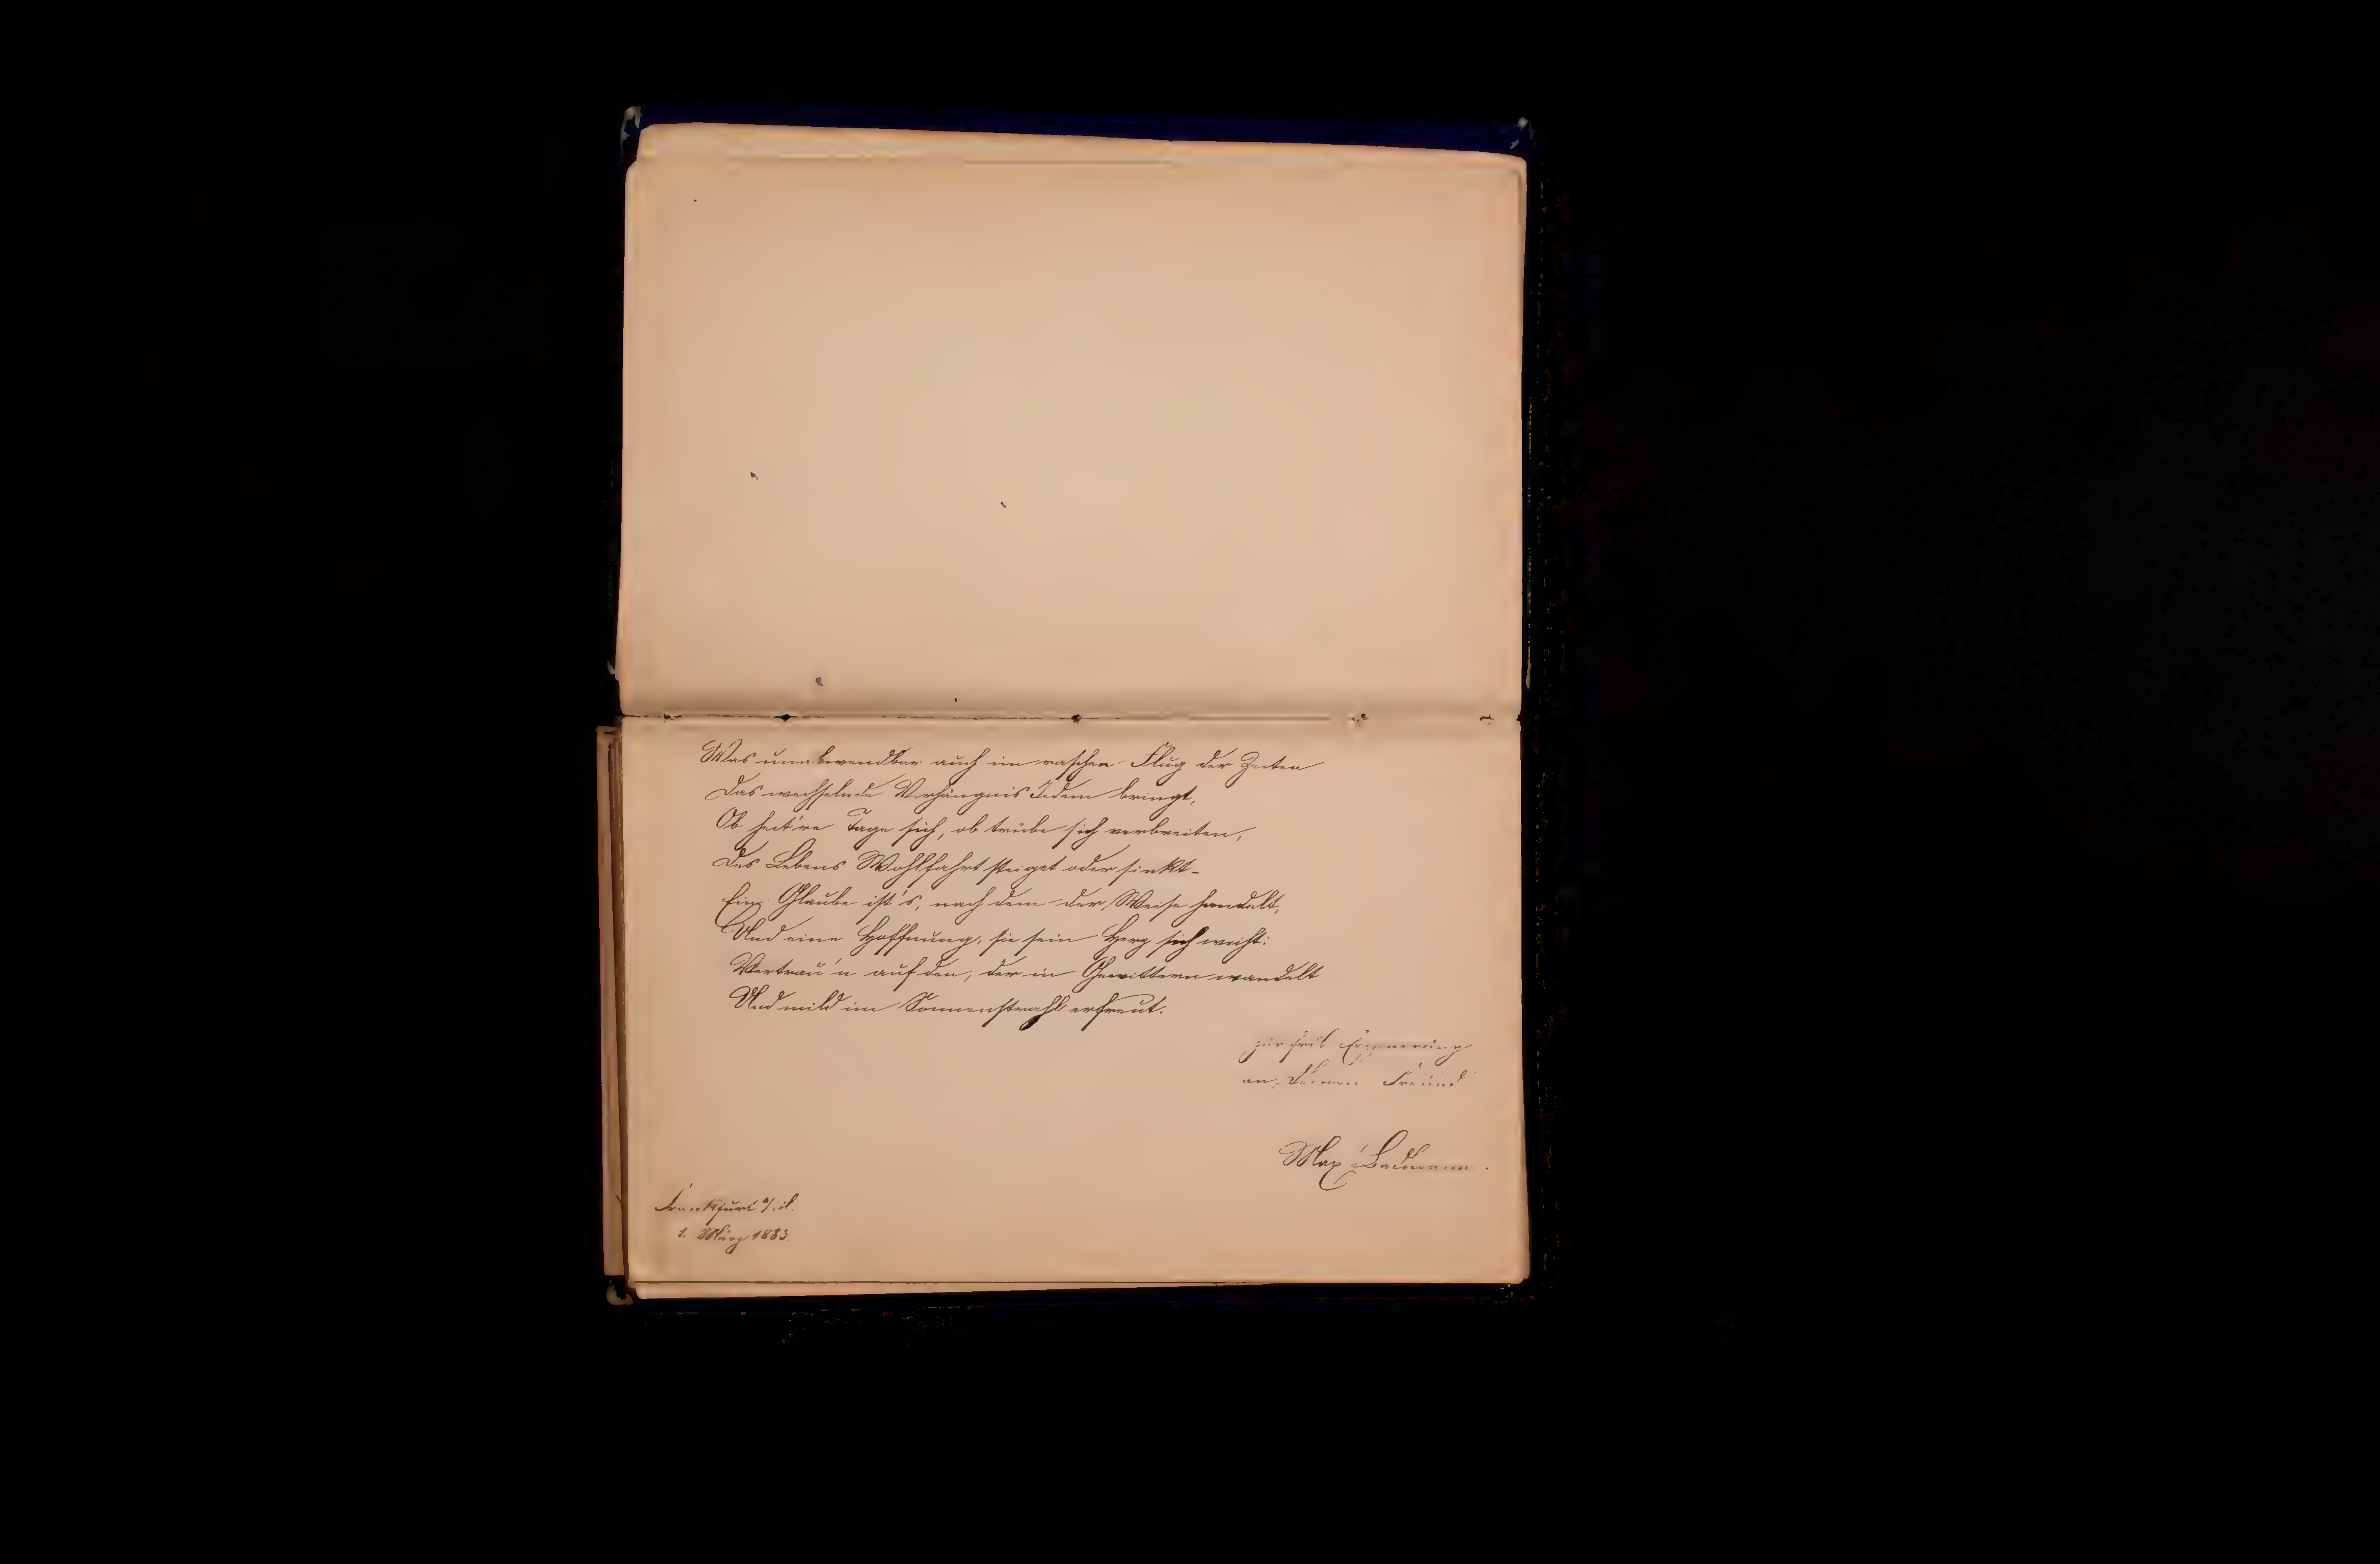 Was unabwendbar auch im raschen Flug der Zeiten
Das wechselnde Verhängnis Jedem bringt,
Ob heit're Tage sich, ob trübe sich verbreiten,
Des Lebens Wohlfahrt steiget oder sinkt-
Ein Glaube ist's, nach dem der Weise handelt,
Und eine Hoffnung, die sein Herz sich weiht:
Vertrau'n auf den, der in Gewittern wandelt
Und mild im Sonnenstrahl erfreut.
zur Erinnerung
an Deinen Freund
Max Bachmann.
Frankfurt a/.
1. März 1883.